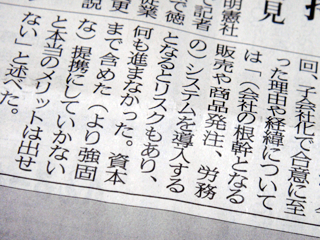 見
明憲社
に記者
で徳
故業
変更
説
回、子会社化で合意に至
った理由や経緯について
は「（会社の根幹となる
販売や商品発注、労務
の）システムを導入する
となるとリスクもあり、
何も進まなかった。資本
まで含めた（より強固
な）提携にしていかない
と本当のメリットは出せ
ない」と述べた。